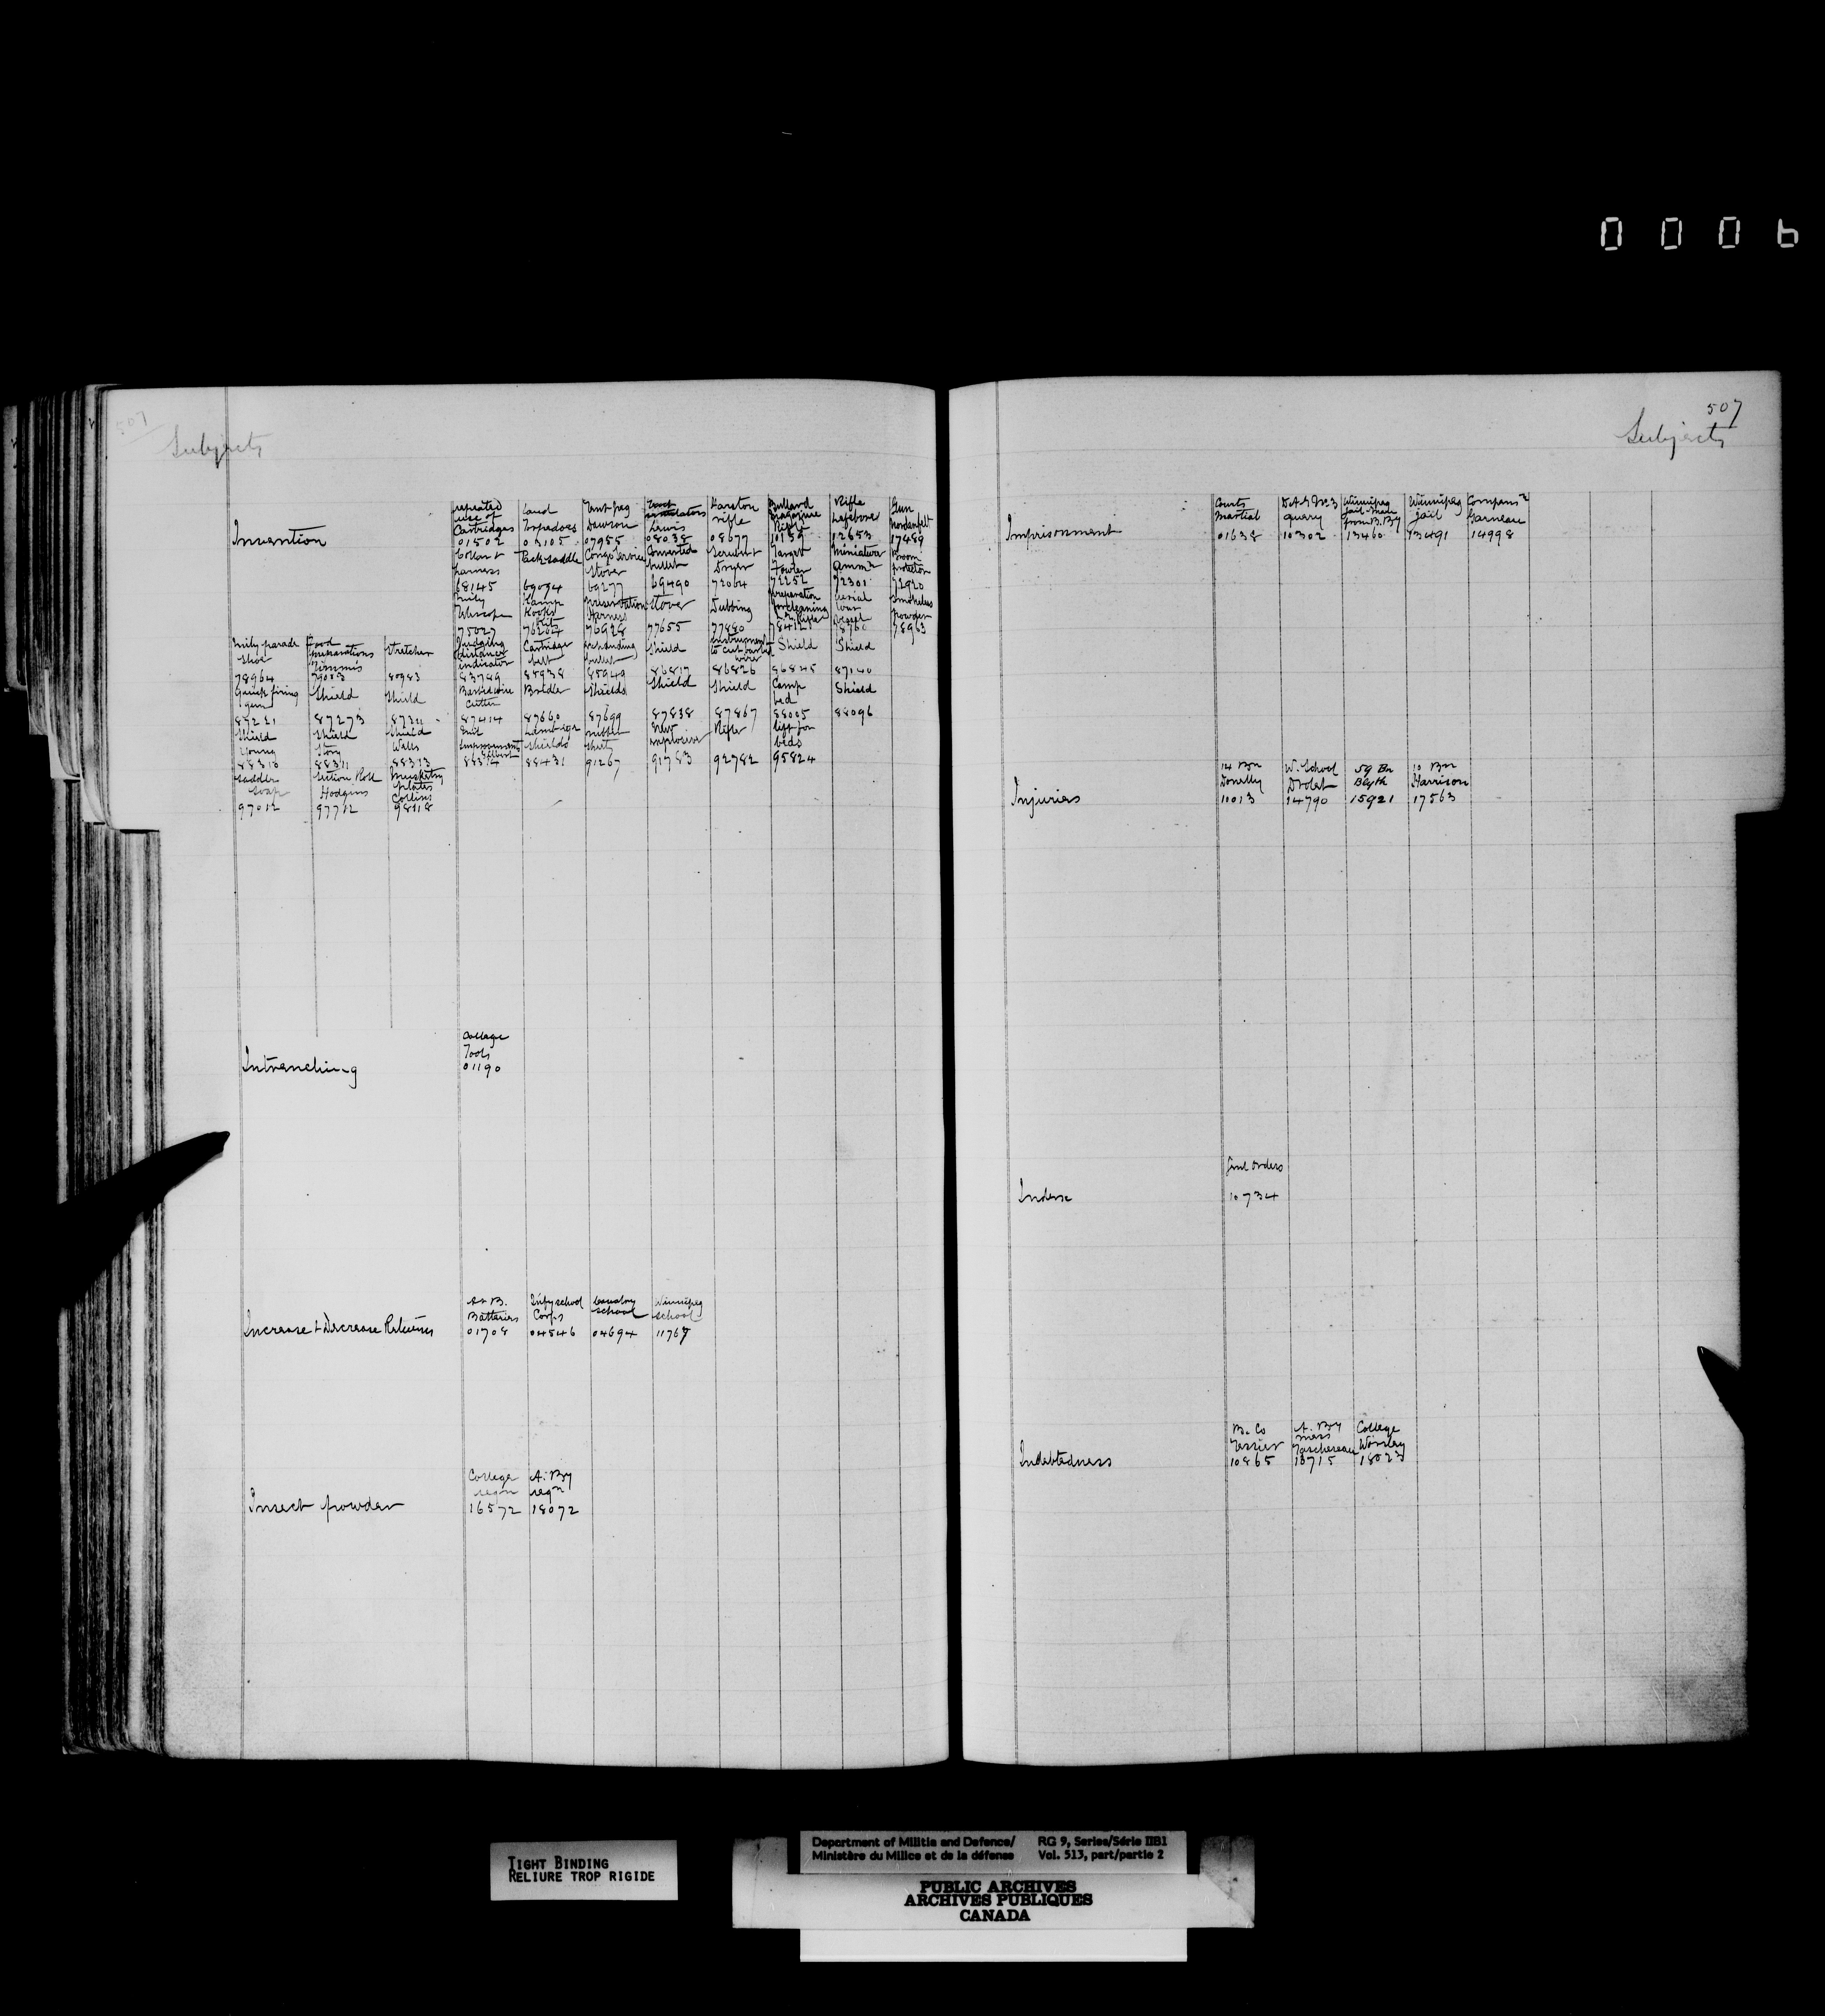 0006
507
Subjects
507
Subjects
Invention
repeated use of Cartridges 01502
Land Torpedoes 03105
Tent peg Dawson 07955
Lewis 08038
Harston rifle 08677
Bullard Magazine Rifle 10159
Rifle Lefebvre 12653
Gun Nordenfelt 17489
Collar & harness 68145
Pack saddle 69094
Congo Service Stover 69277
Inverted bullet 69490
Dryer 72064
Target Towler 72252
Miniature Ammn 72301
Broom protector 72920
75027
Camp Kooks Kit 76204
Preservation Harness 76928
Stover 77655
Dubbing 77880
preparation for cleaning Rifles 78412
Aerial War Vessel 78760
Smokeless Powder 78963
Mily parade Shoe 78964
Food preparations Timmis 79083
Stretcher 80983
Judging distance indicator 83749
Cartridge belt 85938
expanding bullet 85949
Shield 86817
Instrument to cut barbed wire 86826
Shield 86845
Shield 87140
Quick firing gun 87221
Shield 87273
Shield 87311
Barbed wire Cutter 87414
Bridle 87660
Shields 87699
Shield 87838
Shield 87867
Camp bed 88005
Shield 88096
Shield Young 88310
Shield Story 88311
Shield Wallis 88313
Improvements Gilbert 88314
shields 88431
rubber sheets 91267
New explosive 91783
Rifle 92782
lift for beds 95824
Saddle Soap 97012
Section Roll Hodgins 97712
Musketry plates Collins 98118
Intrenching
College Tools 01190
Increase & Decrease Returns
A & B. Batteries 01708
Infy school Corps 04546
Cavalry school 04694
Winnipeg school 11767
Insect powder
College reqn 16572
A. By reqn 18072
Imprisonment
Courts Martial 01638
D.A.G. No. 3 query 10302
Winnipeg jail made from B. By 13460
Winnipeg Jail 13491
Compensn Garneau 14998
Injuries
14 Bn Donelly 11013
W. School Drolet 14790
59 Bn Blyth 15921
10 Bn Harrison 17563
Indexe
Genl Orders 10734
Indebtedness
B. Co Tessier 10865
A. By mess Taschereau 13715
College Worsley 18023
TIGHT BINDING
RELIURE TROP RIGIDE
Department of Militia and Defence/ RG 9, Series/Série IIB1
Ministère du Milice et de la défense Vol. 513, part/partie 2
PUBLIC ARCHIVES
ARCHIVES PUBLIQUES
CANADA